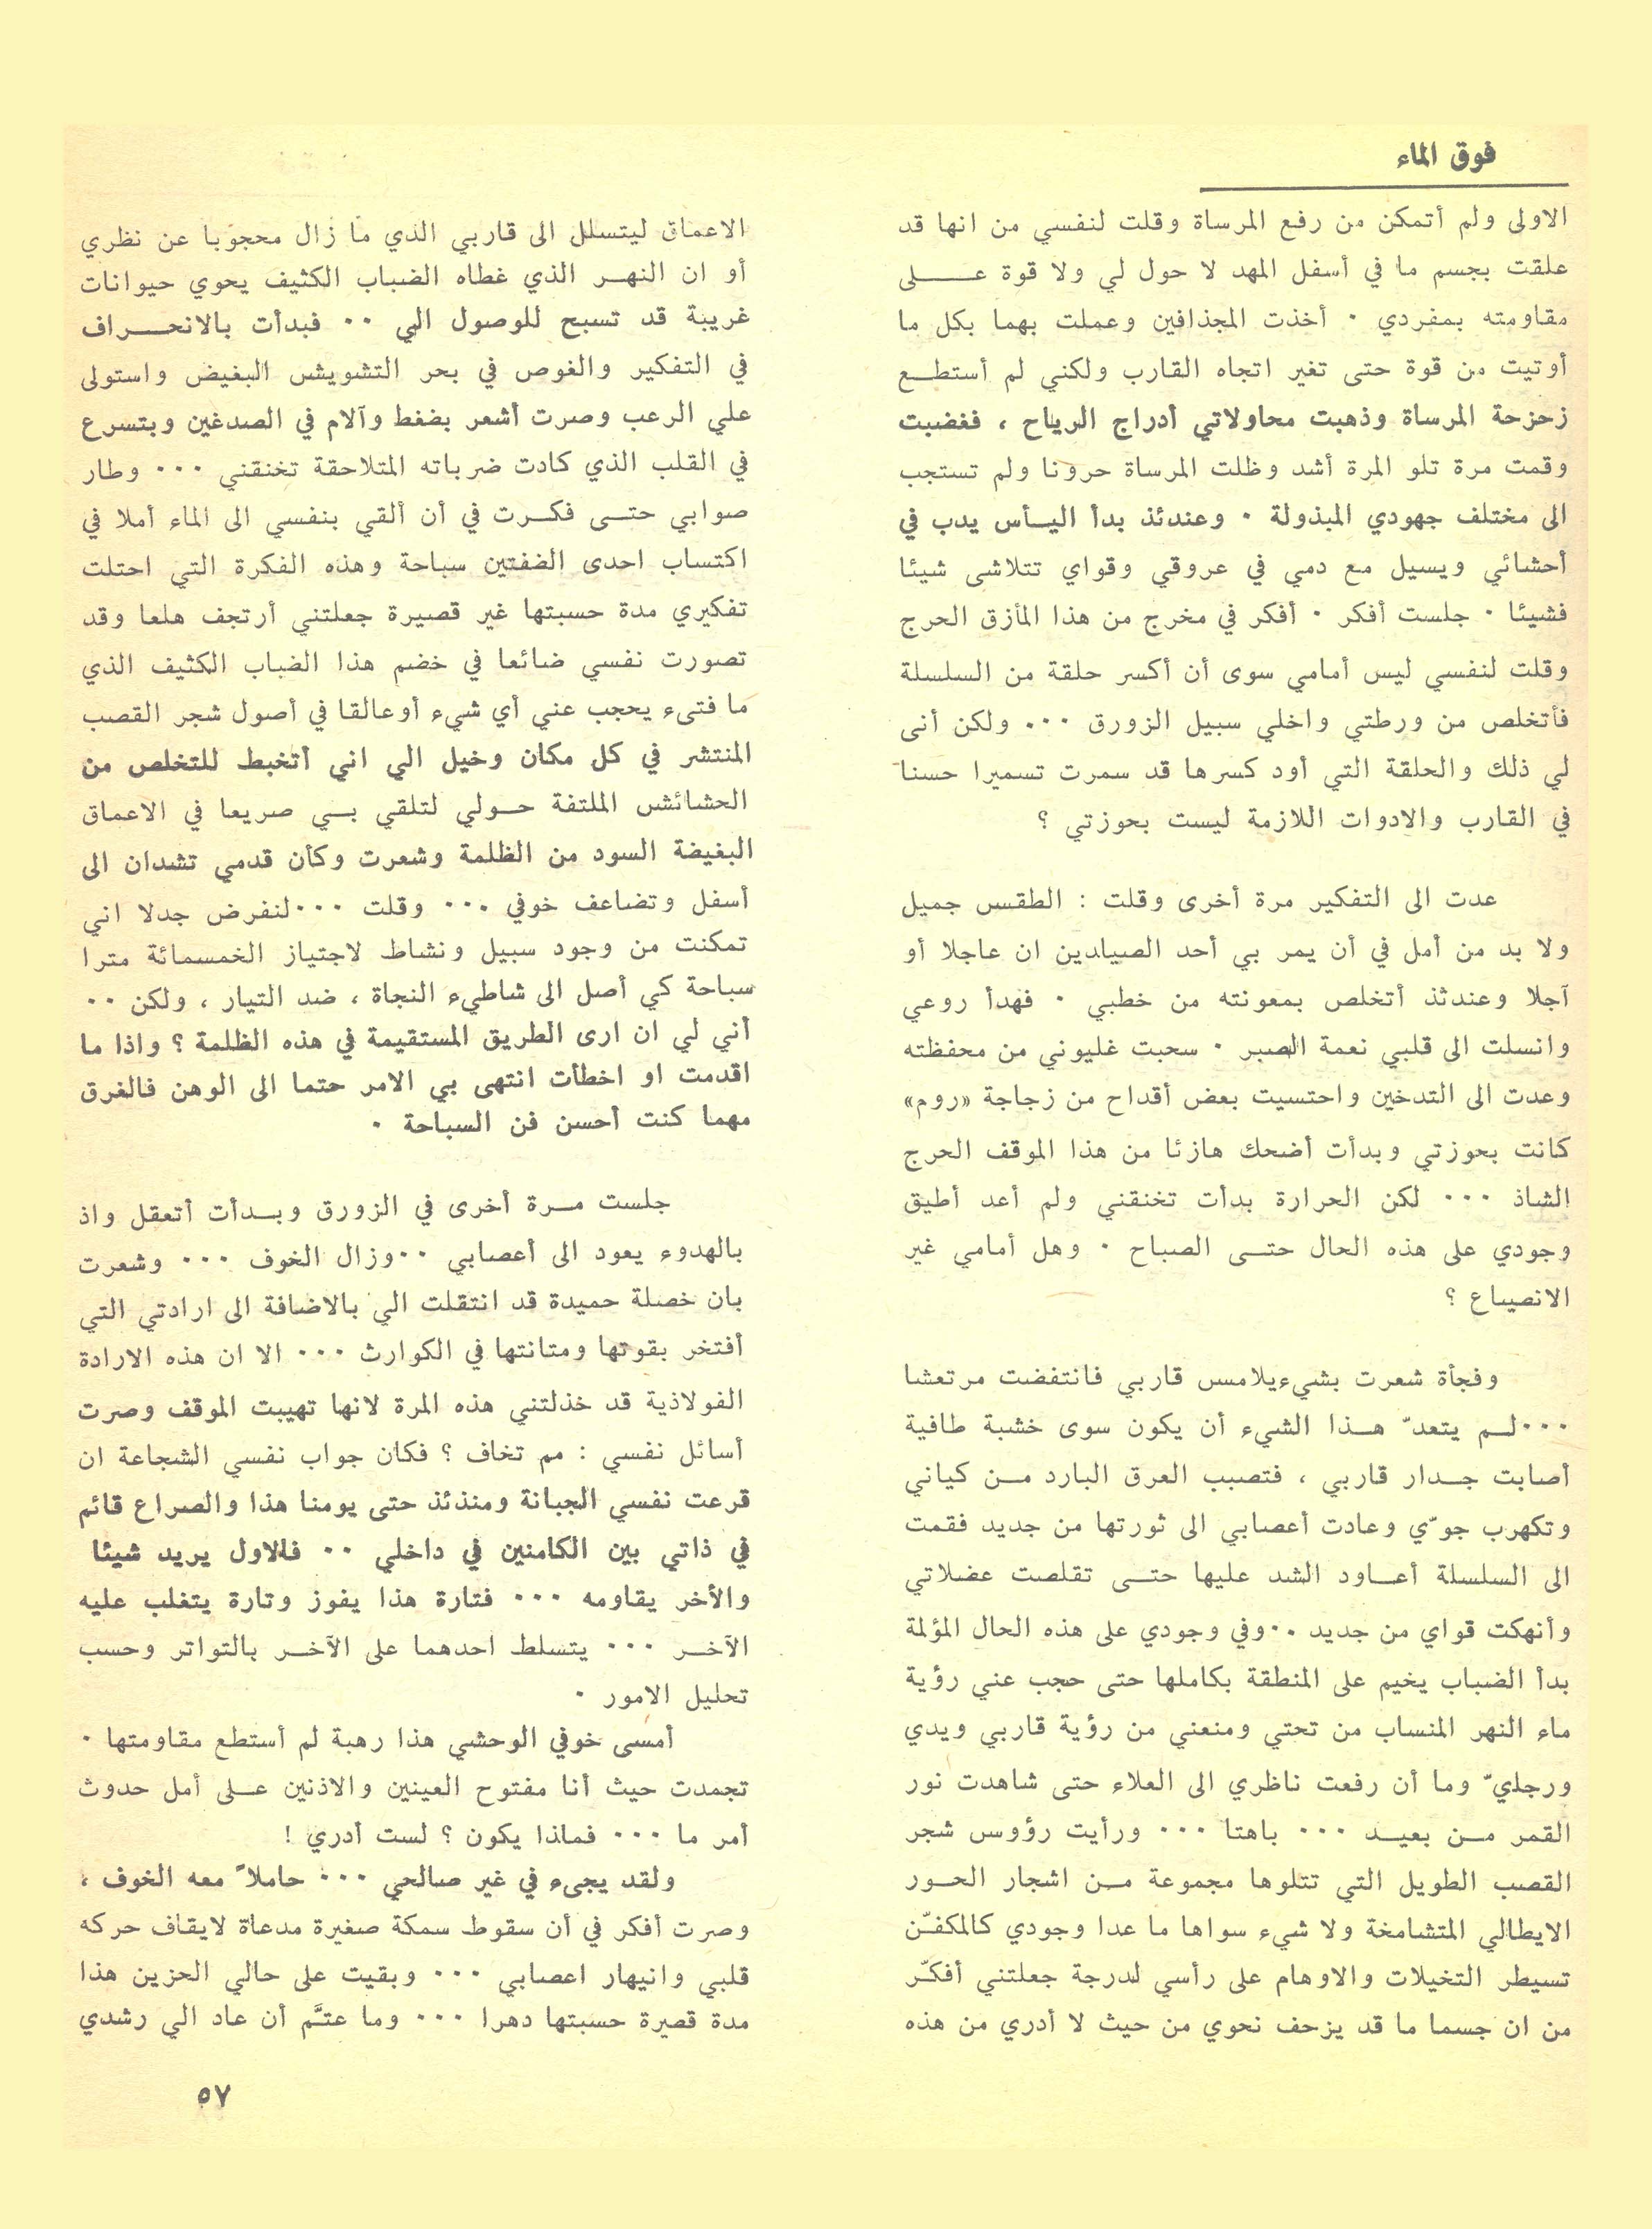 فوق الماء
الاولى ولم أتمكن من رفع المرساة وقلت لنفسي من انها قد
علقت بجسم ما في أسفل المهد لا حول لي ولا قوة عـــــلى
مقاومته بمفردي ٠ أخذت المجذافين وعملت بهما بكل ما
أوتيت من قوة حتى تغير اتجاه القارب ولكني لم أستطـــع
زحزحة المرساة وذهبت محاولاتي أدراج الرياح ، فغضبت
وقمت مرة تلو المرة أشد وظلت المرساة حرونا ولم تستجب
الى مختلف جهودي المبذولة ٠ وعندئذ بدأ اليــأس يدب في
أحشائي ويسيل مع دمي في عروقي وقواي تتلاشى شيئا
فشيئا ٠ جلست أفكر ٠ أفكر في مخرج من هذا المأزق الحرج
وقلت لنفسي ليس أمامي سوى أن أكسر حلقة من السلسلة
فأتخلص من ورطتي واخلي سبيل الزورق ٠٠٠ ولكن أنى
لي ذلك والحلقة التي أود كسرها قد سمرت تسميرا حسنا
في القارب والادوات اللازمة ليست بحوزتي ؟
عدت الى التفكير مرة أخرى وقلت : الطقس جميل
ولا بد من أمل في أن يمر بي أحد الصيادين ان عاجلا أو
آجلا وعندئذ أتخلص بمعونته من خطبي ٠ فهدأ روعي
وانسلت الى قلبي نعمة الصبر ٠ سحبت غليوني من محفظته
وعدت الى التدخين واحتسيت بعض أقداح من زجاجة «روم»
كانت بحوزتي وبدأت أضحك هازئا من هذا الموقف الحرج
الشاذ ٠٠٠ لكن الحرارة بدأت تخنقني ولم أعد أطيق
وجودي على هذه الحال حتــى الصباح ٠ وهل أمامي غير
الانصياع ؟
وفجأة شعرت بشيء يلامس قاربي فانتفضت مرتعشا
٠٠٠لــم يتعدّ هــذا الشيء أن يكون سوى خشبة طافية
أصابت جــدار قاربي ، فتصبب العرق البارد مــن كياني
وتكهرب جوّي وعادت أعصابي الى ثورتها من جديد فقمت
الى السلسلة أعــاود الشد عليها حتــى تقلصت عضلاتي
وأنهكت قواي من جديد ٠٠وفي وجودي على هذه الحال المؤلمة
بدأ الضباب يخيم على المنطقة بكاملها حتى حجب عني رؤية
ماء النهر المنساب من تحتي ومنعني من رؤية قاربي ويدي
ورجليّ وما أن رفعت ناظري الى العلاء حتى شاهدت نور
القمر مــن بعيــد ٠٠٠ باهتا ٠٠٠ ورأيت رؤوس شجر
القصب الطويل التي تتلوها مجموعة مــن اشجار الحــور
الايطالي المتشامخة ولا شيء سواها ما عدا وجودي كالمكفّن
تسيطر التخيلات والاوهام على رأسي لدرجة جعلتني أفكّر
من ان جسما ما قد يزحف نحوي من حيث لا أدري من هذه
الاعماق ليتسلل الى قاربي الذي ما زال محجوبا عن نظري
أو ان النهــر الذي غطاه الضباب الكثيف يحوي حيوانات
غريبة قد تسبح للوصول الي ٠٠ فبدأت بالانحـــراف
في التفكير والغوص في بحر التشويش البغيض واستولى
علي الرعب وصرت أشعر بضغط وآلام في الصدغين وبتسرع
في القلب الذي كادت ضرباته المتلاحقة تخنقني ٠٠٠ وطار
صوابي حتــى فكــرت في أن ألقي بنفسي الى الماء أملا في
اكتساب احدى الضفتين سباحة وهذه الفكرة التي احتلت
تفكيري مدة حسبتها غير قصيرة جعلتني أرتجف هلعا وقد
تصورت نفسي ضائعا في خضم هذا الضباب الكثيف الذي
ما فتىء يحجب عني أي شيء أو عالقا في أصول شجر القصب
المنتشر في كل مكان وخيل الي اني أتخبط للتخلص من
الحشائش الملتفة حــولي لتلقي بــي صريعا في الاعماق
البغيضة السود من الظلمة وشعرت وكأن قدمي تشدان الى
أسفل وتضاعف خوفي ٠٠٠ وقلت ٠٠٠لنفرض جدلا اني
تمكنت من وجود سبيل ونشاط لاجتياز الخمسمائة مترا
سباحة كي أصل الى شاطيء النجاة ، ضد التيار ، ولكن ٠٠
أني لي ان ارى الطريق المستقيمة في هذه الظلمة ؟ واذا ما
اقدمت او اخطأت انتهى بي الامر حتما الى الوهن فالغرق
مهما كنت أحسن فن السباحة ٠
جلست مــرة أخرى في الزورق وبــدأت أتعقل واذ
بالهدوء يعود الى أعصابي ٠٠وزال الخوف ٠٠٠ وشعرت
بان خصلة حميدة قد انتقلت الي بالاضافة الى ارادتي التي
أفتخر بقوتها ومتانتها في الكوارث ٠٠٠ الا ان هذه الارادة
الفولاذية قد خذلتني هذه المرة لانها تهيبت الموقف وصرت
أسائل نفسي : مم تخاف ؟ فكان جواب نفسي الشجاعة ان
قرعت نفسي الجبانة ومنذئذ حتى يومنا هذا والصراع قائم
في ذاتي بين الكامنين في داخلي ٠٠ فالاول يريد شيئا
والأخر يقاومه ٠٠٠ فتارة هذا يفوز وتارة يتغلب عليه
الآخــر ٠٠٠ يتسلط احدهما على الآخــر بالتواتر وحسب
تحليل الامور ٠
أمسى خوفي الوحشي هذا رهبة لم أستطع مقاومتها ٠
تجمدت حيث أنا مفتوح العينين والاذنين علــى أمل حدوث
أمر ما ٠٠٠ فماذا يكون ؟ لست أدري !
ولقد يجىء في غير صالحي ٠٠٠ حاملاً معه الخوف ،
وصرت أفكر في أن سقوط سمكة صغيرة مدعاة لايقاف حركه
قلبي وانيهار اعصابي ٠٠٠ وبقيت على حالي الحزين هذا
مدة قصيرة حسبتها دهرا ٠٠٠ وما عتـَّم أن عاد الي رشدي
٥٧